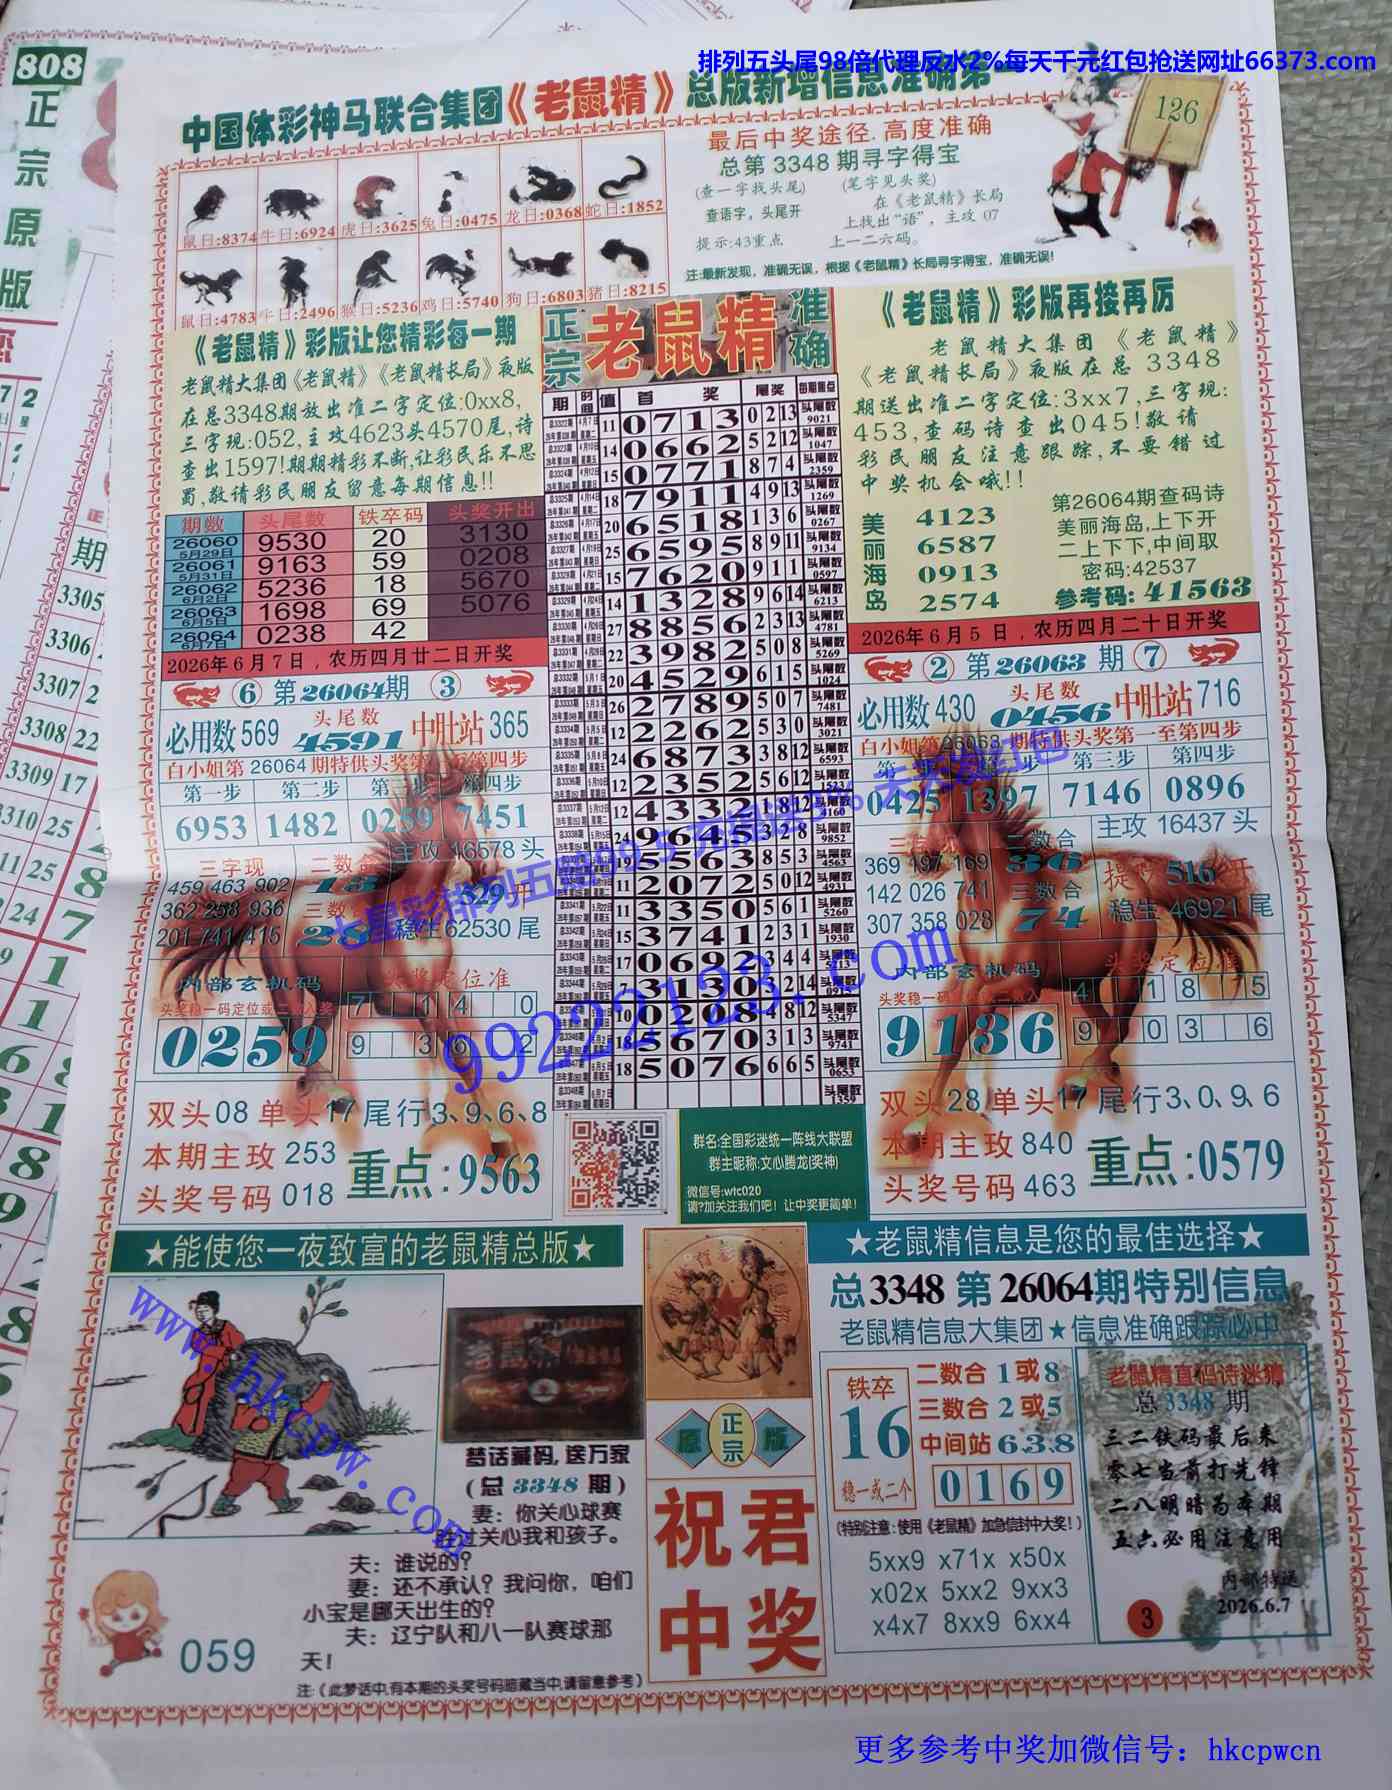 排列五头尾98倍代理反水2%每天千元红包抢送网址66373.com
808
正宗原版
中国体彩神马联合集团《老鼠精》总版新增信息准确第一
126
最后中奖途径.高度准确
总第3348期寻字得宝
(查一字找头尾)
(笔字见头奖)
查语字，头尾开
在《老鼠精》长局
上找出“语”，主攻07
提示:43重点
上一二六码。
注:最新发现，准确无误，根据《老鼠精》长局寻字得宝，准确无误!
鼠日:8374 牛日:6924 虎日:3625 兔日:0475 龙日:0368 蛇日:1852
鼠日:4783 牛日:2496 猴日:5236 鸡日:5740 狗日:6803 猪日:8215
《老鼠精》彩版让您精彩每一期
老鼠精大集团《老鼠精》《老鼠精长局》夜版
在总3348期放出准二字定位:0xx8,
三字现:052,主攻4623头4570尾,诗
查出1597!期期精彩不断,让彩民乐不思
蜀,敬请彩民朋友留意每期信息!!
期数 头尾数 铁卒码 头奖开出
26060 5月29日 9530 20 3130
26061 5月31日 9163 59 0208
26062 6月2日 5236 18 5670
26063 6月5日 1698 69 5076
26064 6月7日 0238 42
2026年6月7日，农历四月廿二日开奖
6 第26064期 3
必用数569 头尾数 4591 中肚站365
白小姐第26064期特供头奖第一至第四步
第一步 第二步 第三步 第四步
6953 1482 0259 7451
三字现 二数合 主攻16578头
459 463 902 13
362 258 936 三数合 329
201 741 415 稳生62530尾
内部玄机码 头奖定位准
头奖稳一码定位或二数入奖
0259
7 1 4 0
9 3 6 2
双头08单头17尾行3、9、6、8
本期主玫253
头奖号码018
重点:9563
正宗 老鼠精 准确
期 时间 值 首奖 尾奖 每期重点
总3322期 4月7日 11 0713 0 2 13 头尾数 9021
总3323期 4月10日 14 0662 5 2 12 头尾数 1047
总3324期 4月12日 15 0771 8 7 4 头尾数 2359
总3325期 4月14日 18 7911 4 9 13 头尾数 1269
总3326期 4月17日 20 6518 1 3 6 头尾数 0267
总3327期 4月19日 25 6595 8 9 11 头尾数 9134
总3328期 4月21日 15 7620 9 1 1 头尾数 0597
总3329期 4月24日 14 1328 9 6 14 头尾数 6213
总3330期 4月26日 27 8856 2 3 13 头尾数 4781
总3331期 4月28日 22 3982 5 0 8 头尾数 5269
总3332期 5月1日 20 4529 6 1 5 头尾数 1024
总3333期 5月3日 26 2789 5 0 7 头尾数 7481
总3334期 5月5日 12 2262 5 3 0 头尾数 3021
总3335期 5月8日 24 6873 3 8 12 头尾数 6593
总3336期 5月10日 12 2352 5 6 12 头尾数
总3337期 5月12日 12 4332 1 8 12 头尾数
总3338期 5月15日 24 9645 3 2 8 头尾数 9852
19 5563 8 5 3 头尾数 4563
11 2072 5 0 12 头尾数 4931
总3341期 5月22日 11 3350 5 6 1 头尾数 5260
总3342期 5月24日 15 3741 2 3 1 头尾数 1930
总3343期 5月26日 17 0692 3 4 4 头尾数
总3344期 5月29日 7 3130 3 2 14 头尾数
10 0208 4 8 12 头尾数 5347
18 5670 3 1 3 头尾数 5741
18 5076 6 6 5 头尾数 0653
总3348期 6月7日 头尾数
《老鼠精》彩版再接再厉
老鼠精大集团《老鼠精》
《老鼠精长局》夜版在总3348
期送出准二字定位:3xx7,三字现:
453,查码诗查出045!敬请
彩民朋友注意跟踪,不要错过
中奖机会哦!!
美丽海岛
4123
6587
0913
2574
第26064期查码诗
美丽海岛,上下开
二上下下,中间取
密码:42537
参考码:41563
2026年6月5日，农历四月二十日开奖
2 第26063期 7
必用数430 头尾数 0456 中肚站716
白小姐第26063期特供头奖第一至第四步
第一步 第二步 第三步 第四步
0425 1397 7146 0896
三字现 二数合 主攻16437头
369 197 169 36
142 026 741 三数合 516
307 358 028 74 稳生46921尾
内部玄机码 头奖定位准
9136
4 1 8 5
9 0 3 6
双头28单头17尾行3、0、9、6
本期主玫840
头奖号码463
重点:0579
七星彩排列五
99222123.com
群名:全国彩迷统一阵线大联盟
群主昵称:文心腾龙(奖神)
微信号:wtc020
请?加关注我们吧！让中奖更简单!
★能使您一夜致富的老鼠精总版★
★老鼠精信息是您的最佳选择★
www.hkcpw.com
梦话藏码,送万家
(总3348期)
妻：你关心球赛
胜过关心我和孩子。
夫：谁说的?
妻：还不承认？我问你，咱们
小宝是哪天出生的?
夫：辽宁队和八一队赛球那
天!
注:（此梦话中,有本期的头奖号码暗藏当中,请留意参考）
059
原 正宗 版
祝君中奖
总3348第26064期特别信息
老鼠精信息大集团★信息准确跟踪必中
铁卒
16
稳一或二个
二数合1或8
三数合2或5
中间站638
0169
(特别注意:使用《老鼠精》加急信封中大奖!)
5xx9 x71x x50x
x02x 5xx2 9xx3
x4x7 8xx9 6xx4
老鼠精直码诗迷猜
总3348期
三二铁码最后来
零七当前打先锋
二八明暗为本期
五六必用注意用
内部特送
2026.6.7
3
更多参考中奖加微信号：hkcpwcn